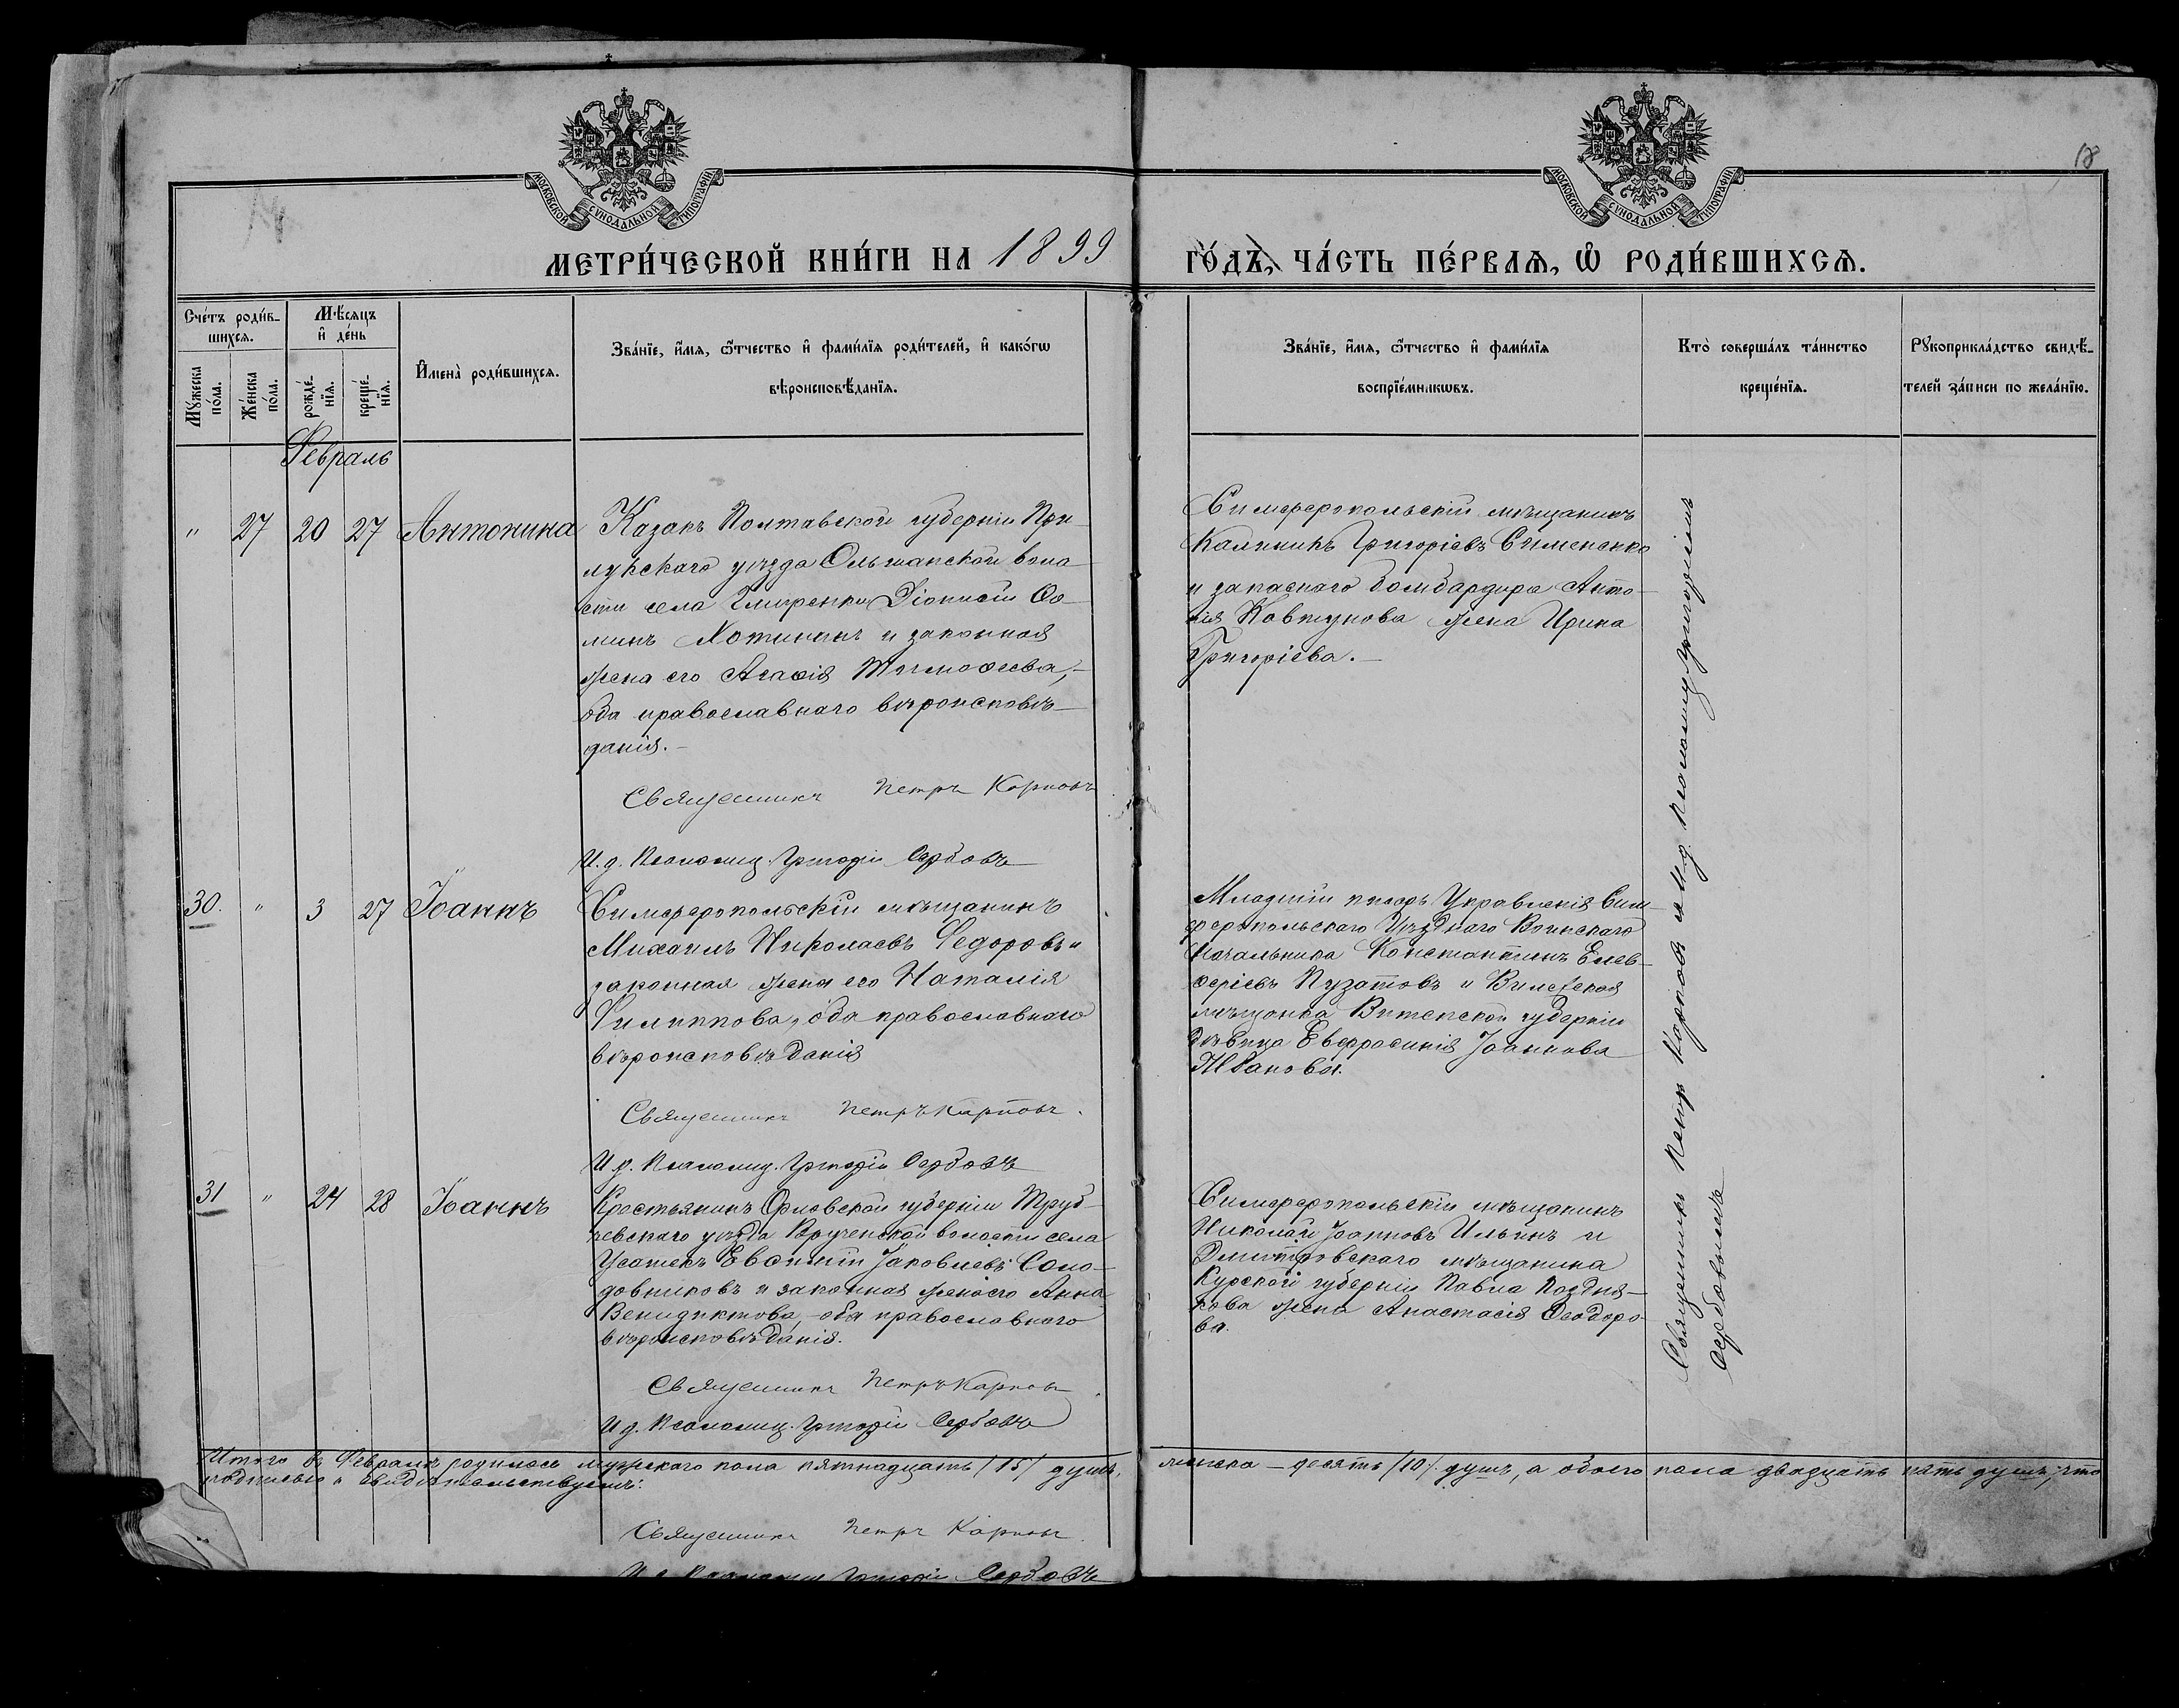 МОСКОВСКОЙ СУНОДАЛЬНОЙ ТИПОГРАФІИ
МОСКОВСКОЙ СУНОДАЛЬНОЙ ТИПОГРАФІИ
18
МЕТРИ́ЧЕСКОЙ КНИ́ГИ НА 1899 ГО́ДЪ, ЧА́СТЬ ПЕ́РВАѦ, Ѡ РОДИ́ВШИХСѦ.
Сче́тъ роди́в-
шихсѧ.
Мꙋ́жеска по́ла.
Же́нска по́ла.
Мѣ́сѧцъ
и҆ де́нь
рожде́-нїѧ.
креще́-нїѧ.
И҆мена̀ роди́вшихсѧ.
Зва́нїе, и҆́мѧ, ѻ҆́тчество и҆ фами́лїѧ роди́телей, и҆ како́гѡ
вѣроисповѣ́данїѧ.
Зва́нїе, и҆́мѧ, ѻ҆́тчество и҆ фами́лїѧ
воспрїе́мникѡвъ.
Кто̀ соверша́лъ та́инство
креще́нїѧ.
Рꙋкоприкла́дство свидѣ́-
телей за́писи по жела́нїю.
Февраль
" 27 20 27 Антонина
Казакъ Полтавской губерніи При-
лукскаго уѣзда Ольшанской воло-
сти села Діонисій Ѳо-
минъ и законная
жена его Агаѳія Тимоѳеева,
оба православнаго вѣроисповѣ-
данія.
Священникъ Петръ Карповъ
И. д. Псаломщ. Григорій Сербовъ
Симферопольскій мѣщанинъ
Калиникъ Григоріевъ Симененко
и запаснаго бомбардира Анто-
нія Ковтунова жена Ирина
Григоріева.
30. " 3 27 Іоаннъ
Симферопольскій мѣщанинъ
Михаилъ Николаевъ Федоровъ и
законная жена его Наталія
Филиппова, оба православнаго
вѣроисповѣданія
Священникъ Петръ Карповъ.
И. д. Псаломщ. Григорій Сербовъ
Младшій писарь Управленія Сим-
феропольскаго Уѣзднаго Воинскаго
Начальника Константинъ Елев-
ѳеріевъ Пузатовъ и
мѣщанка Витепской губерніи
дѣвица Евфросинія Іоаннова
31 " 24 28 Іоаннъ
Крестьянинъ Орловской губерніи Труб-
чевскаго уѣзда волости села
Евѳимій Іаковлевъ Соло-
довниковъ и законная жена его Анна
Венидиктова, оба православнаго
вѣроисповѣданія.
Священникъ Петръ Карповъ
И д. Псаломщ. Григорій Сербовъ
Симферопольскій мѣщанинъ
Николай Іоанновъ Ильинъ и
Дмитровскаго мѣщанина
Курской губерніи Павла Поздня-
кова жена Анастасія Ѳеодоро-
ва.
Священникъ Петръ Карповъ и И. д. Псаломщ. Григоріемъ
Сербовымъ
Итого въ Февралѣ родилось мужскаго пола пятнадцать /15/ душъ, женска — десять /10/ душъ, а обоего пола двадцать пять душъ, что
подписью и свидѣтельствуемъ:
Священникъ Петръ Карповъ.
И. д. Псаломщ. Григорій Сербовъ